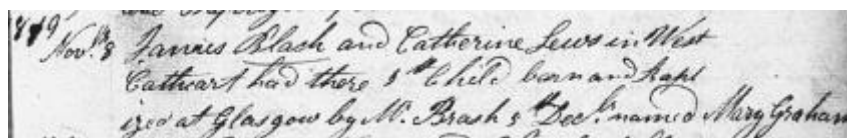 1819
Nov.r 8 James Blash and Catherine Lews in West
Cathcart had there 8th Child born and Bapt
ized at Glasgow by Mr. Brash 5th Decr. named Mary Graham